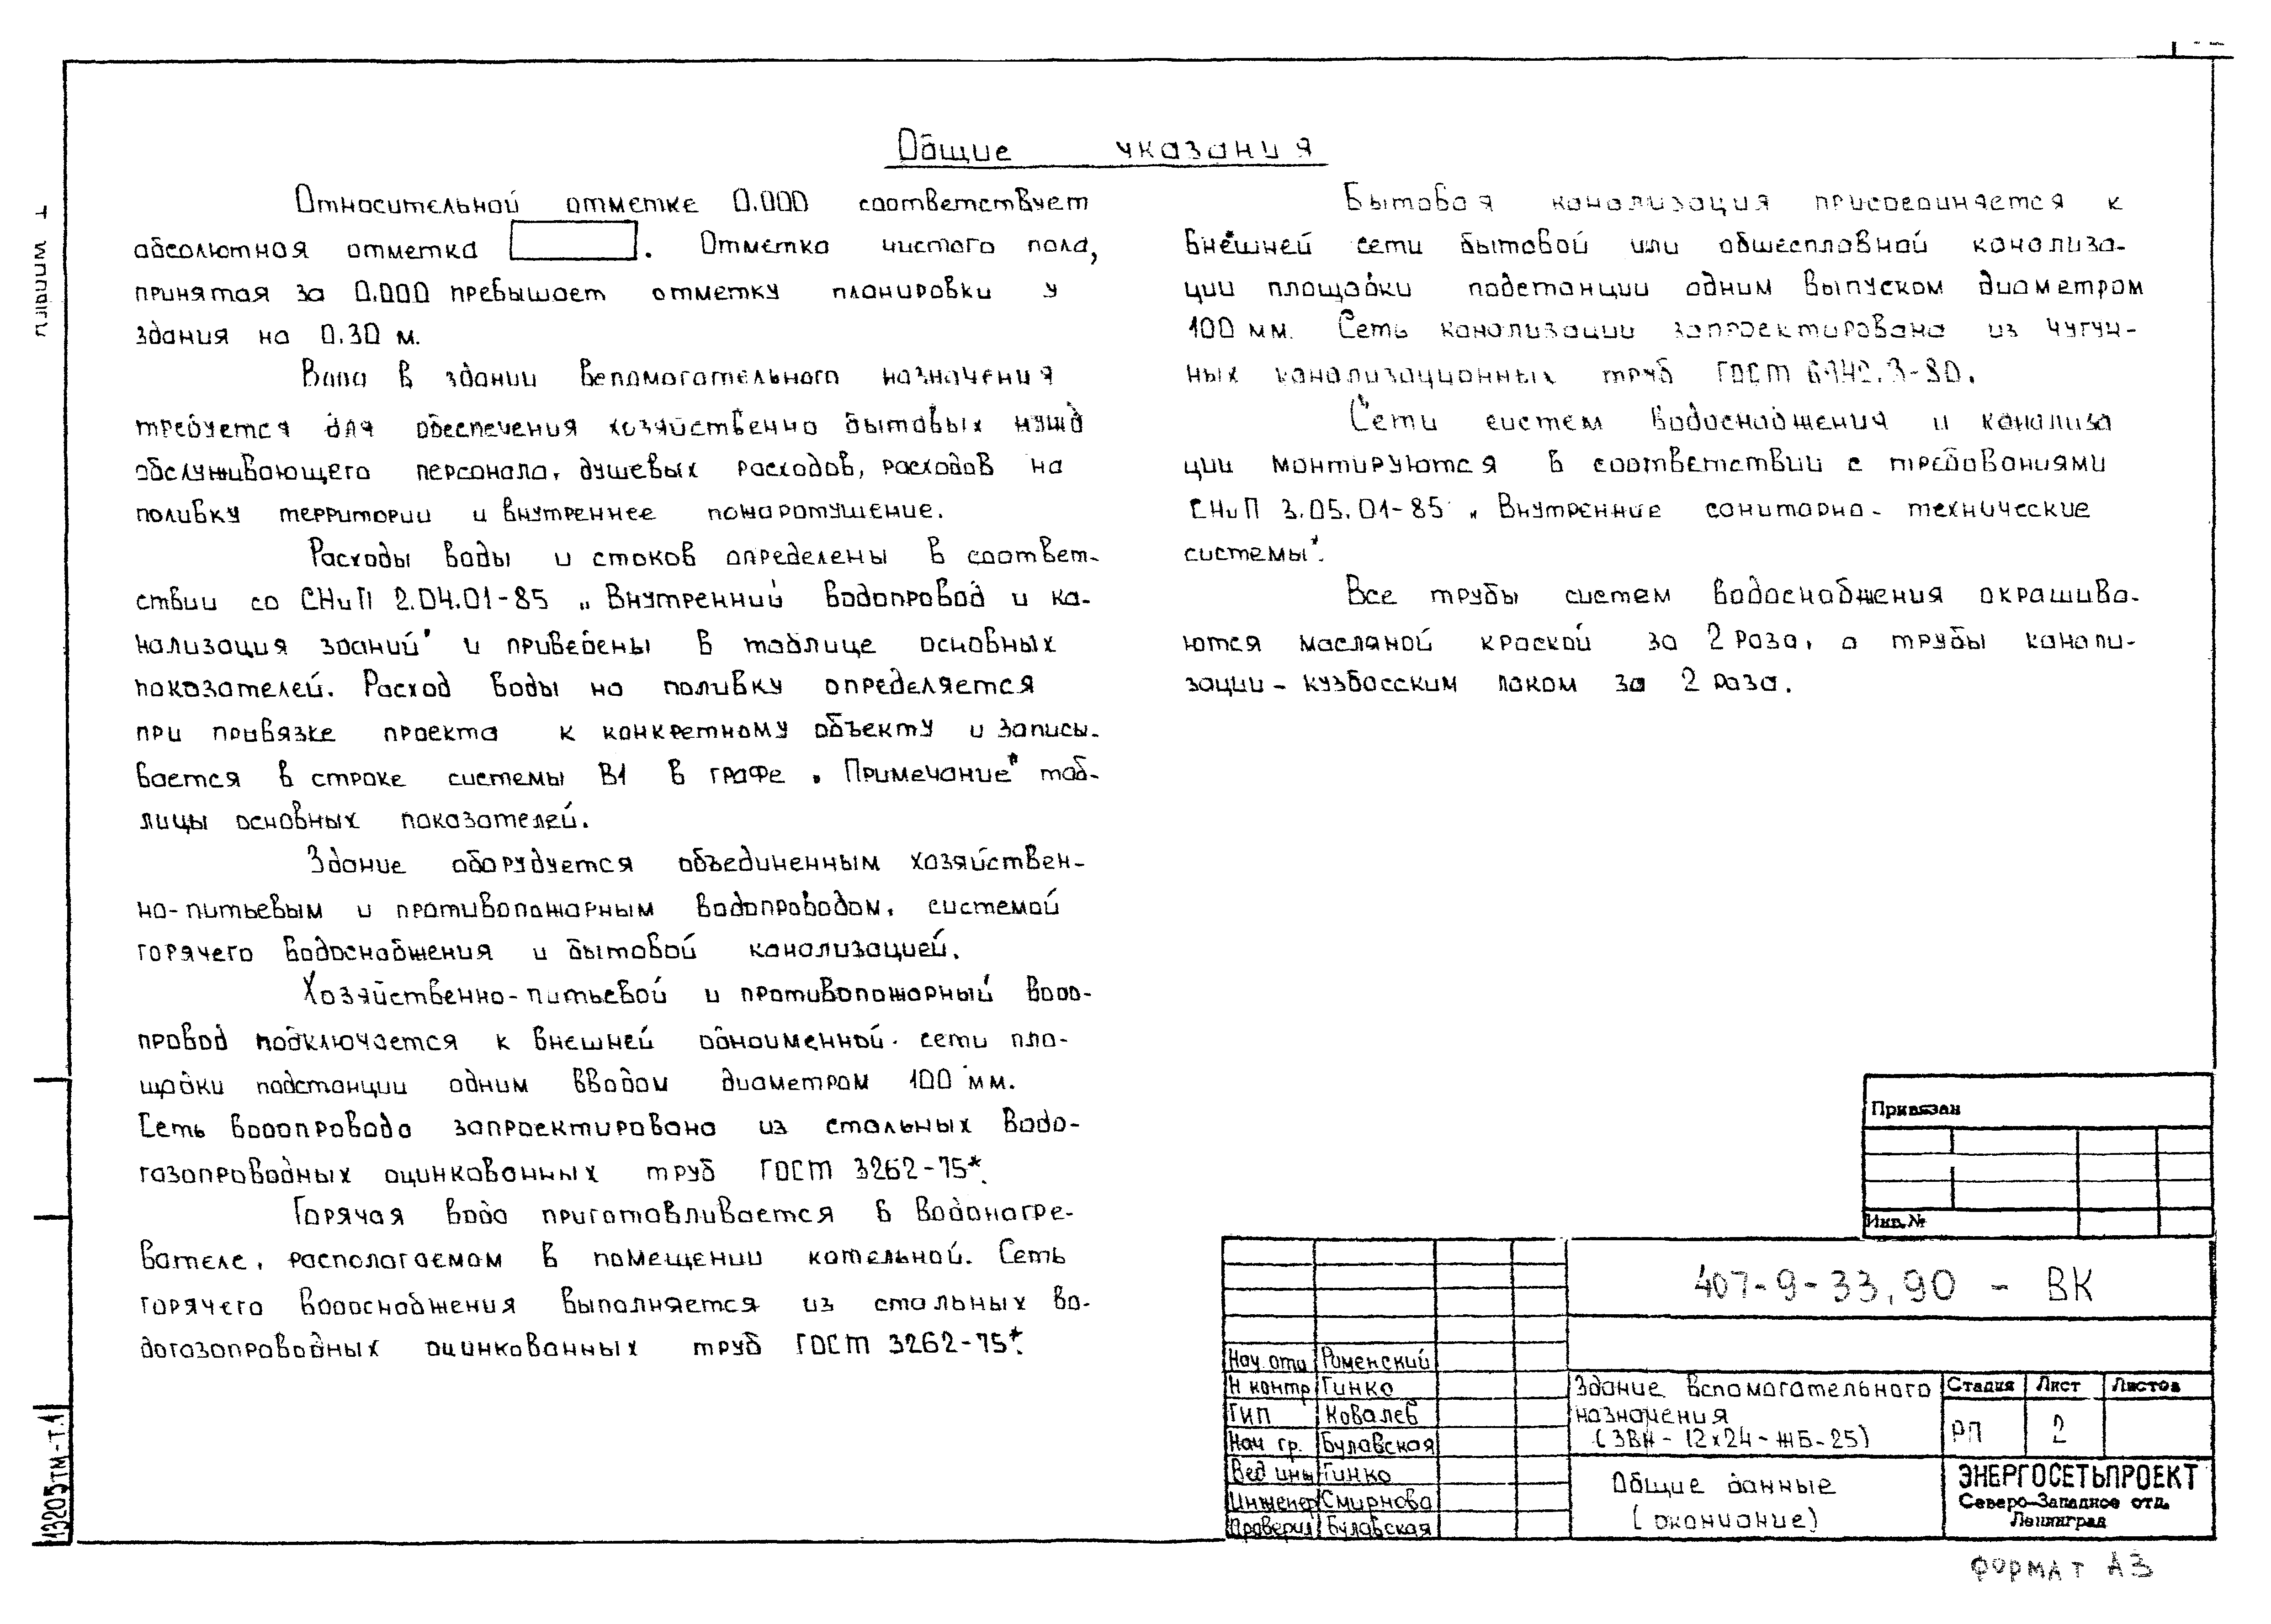 Общие указания
Относительной отметке 0.000 соответствует
абсолютная отметка . Отметка чистого пола,
принятая за 0.000 превышает отметку планировки у
здания на 0.30 м.
Вода в здании вспомогательного назначения
требуется для обеспечения хозяйственно бытовых нужд
обслуживающего персонала, душевых расходов, расходов на
поливку территории и внутреннее пожаротушение.
Расходы воды и стоков определены в соответ-
ствии со СНиП 2.04.01-85 „Внутренний водопровод и ка-
нализация зданий" и приведены в таблице основных
показателей. Расход воды на поливку определяется
при привязке проекта к конкретному объекту и записы-
вается в строке системы В1 в графе „Примечание" таб-
лицы основных показателей.
Здание оборудуется объединенным хозяйствен-
но-питьевым и противопожарным водопроводом, системой
горячего водоснабжения и бытовой канализацией.
Хозяйственно-питьевой и противопожарный водо-
провод подключается к внешней одноименной сети пло-
щадки подстанции одним вводом диаметром 100 мм.
Сеть водопровода запроектирована из стальных водо-
газопроводных оцинкованных труб ГОСТ 3262-75*.
Горячая вода приготавливается в водонагре-
вателе, располагаемом в помещении котельной. Сеть
горячего водоснабжения выполняется из стальных во-
догазопроводных оцинкованных труб ГОСТ 3262-75*.
Бытовая канализация присоединяется к
внешней сети бытовой или общесплавной канализа-
ции площадки подстанции одним выпуском диаметром
100 мм. Сеть канализации запроектирована из чугун-
ных канализационных труб ГОСТ 6942.3-80.
Сети систем водоснабжения и канализа
ции монтируются в соответствии с требованиями
СНиП 3.05.01-85 „Внутренние санитарно-технические
системы".
Все трубы систем водоснабжения окрашива-
ются масляной краской за 2 раза, а трубы канали-
зации - кузбасским лаком за 2 раза.
Привязан
Инв. №
407-9-33.90 - ВК
Нач отд Роменский
Н контр Гинко
ГИП Ковалев
Нач гр. Булавская
Вед инж Гинко
Инженер Смирнова
Проверил Булавская
Здание вспомогательного
назначения
(ЗВН-12х24-ЖБ-25)
Стадия Лист Листов
РП 2
Общие данные
(окончание)
ЭНЕРГОСЕТЬПРОЕКТ
Северо-Западное отд.
Ленинград
ФОРМАТ А3
13205тм-т.1